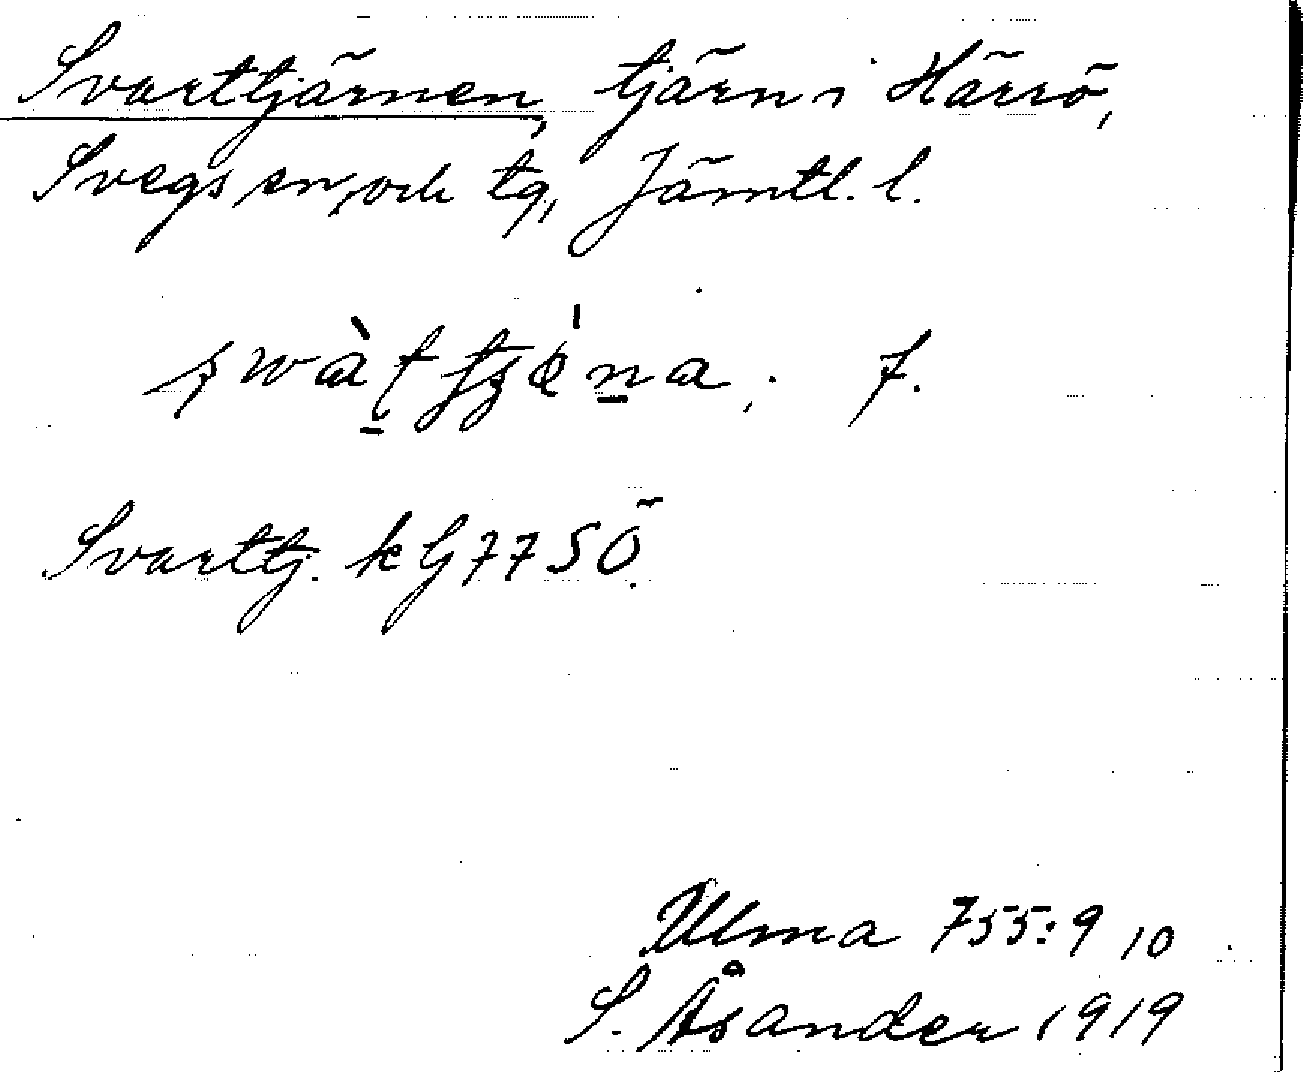 Svarttjärnen, tjärn i Härrö,
Svegs sn, och tg, Jämtl. l.
f.
Svarttj. k G 77 SÖ.
Ulma 755:9 10
S. Åsander 1919